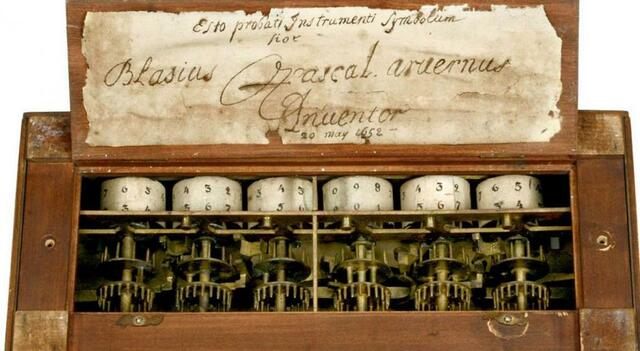 Esto probati Instrumenti Symbolum
hoc
Blasius Pascal. aruernus
Inventor
20 may 1652
4 3 2 5 4 3 0 9 8 4 3 2 6 5